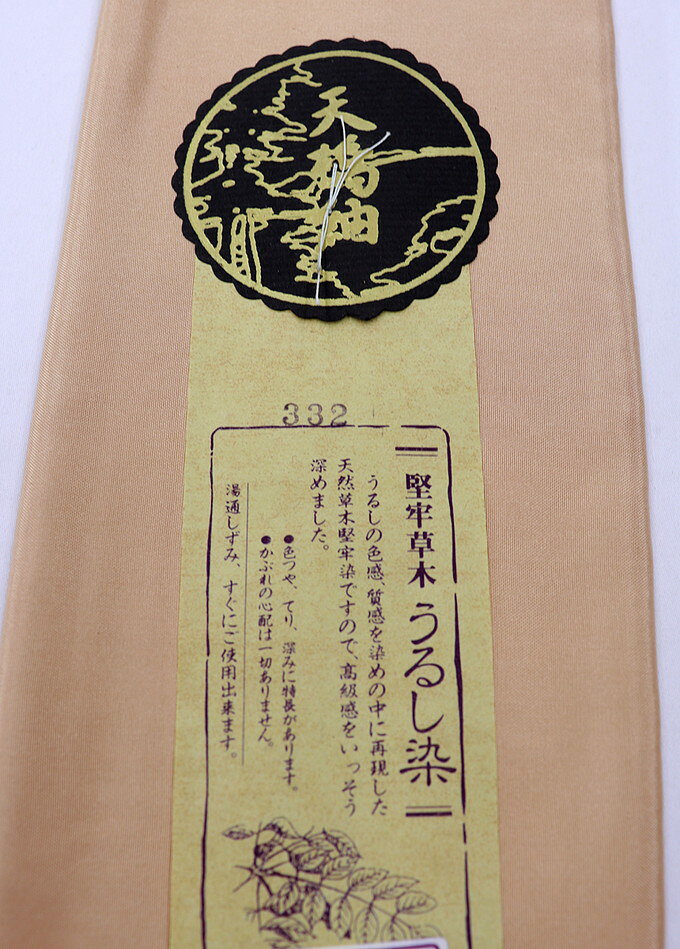 天橋紬
332
堅牢草木うるし染
うるしの色感、質感を染めの中に再現した
天然草木堅牢染ですので、高級感をいっそう
深めました。
●色つや、てり、深みに特長があります。
●かぶれの心配は一切ありません。
湯通しずみ、すぐにご使用出来ます。